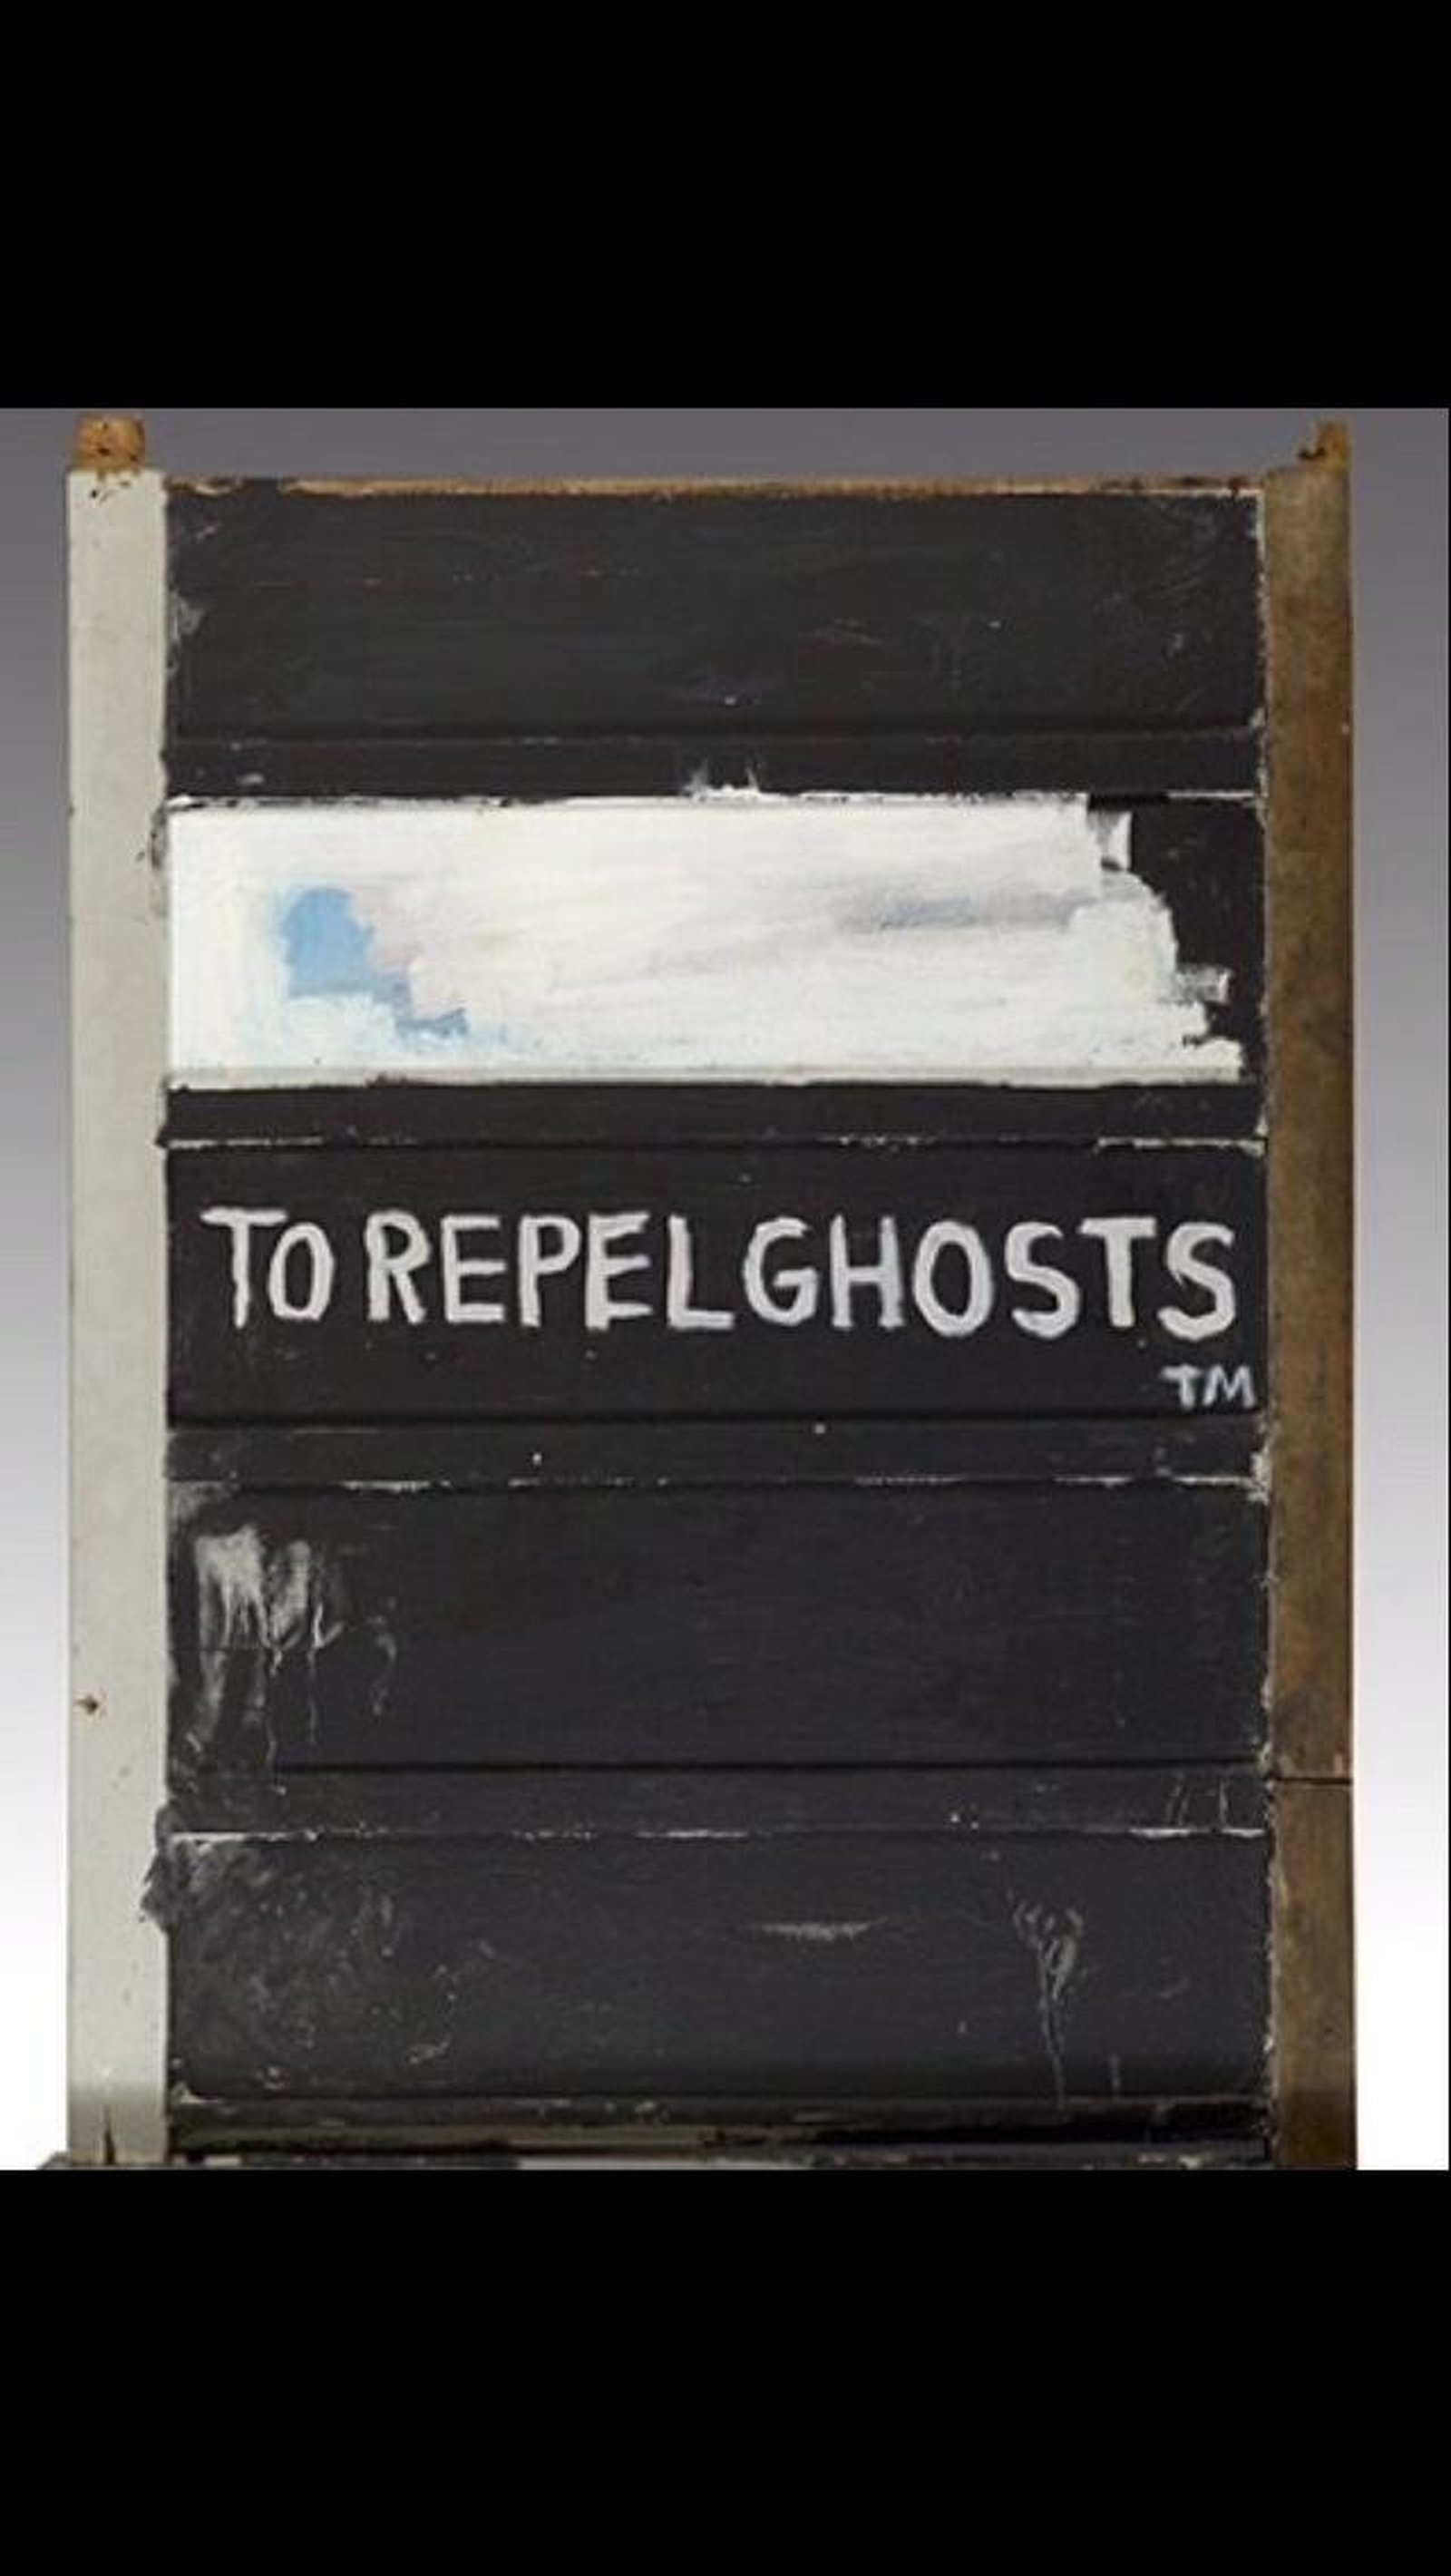 TO REPEL GHOSTS
TM